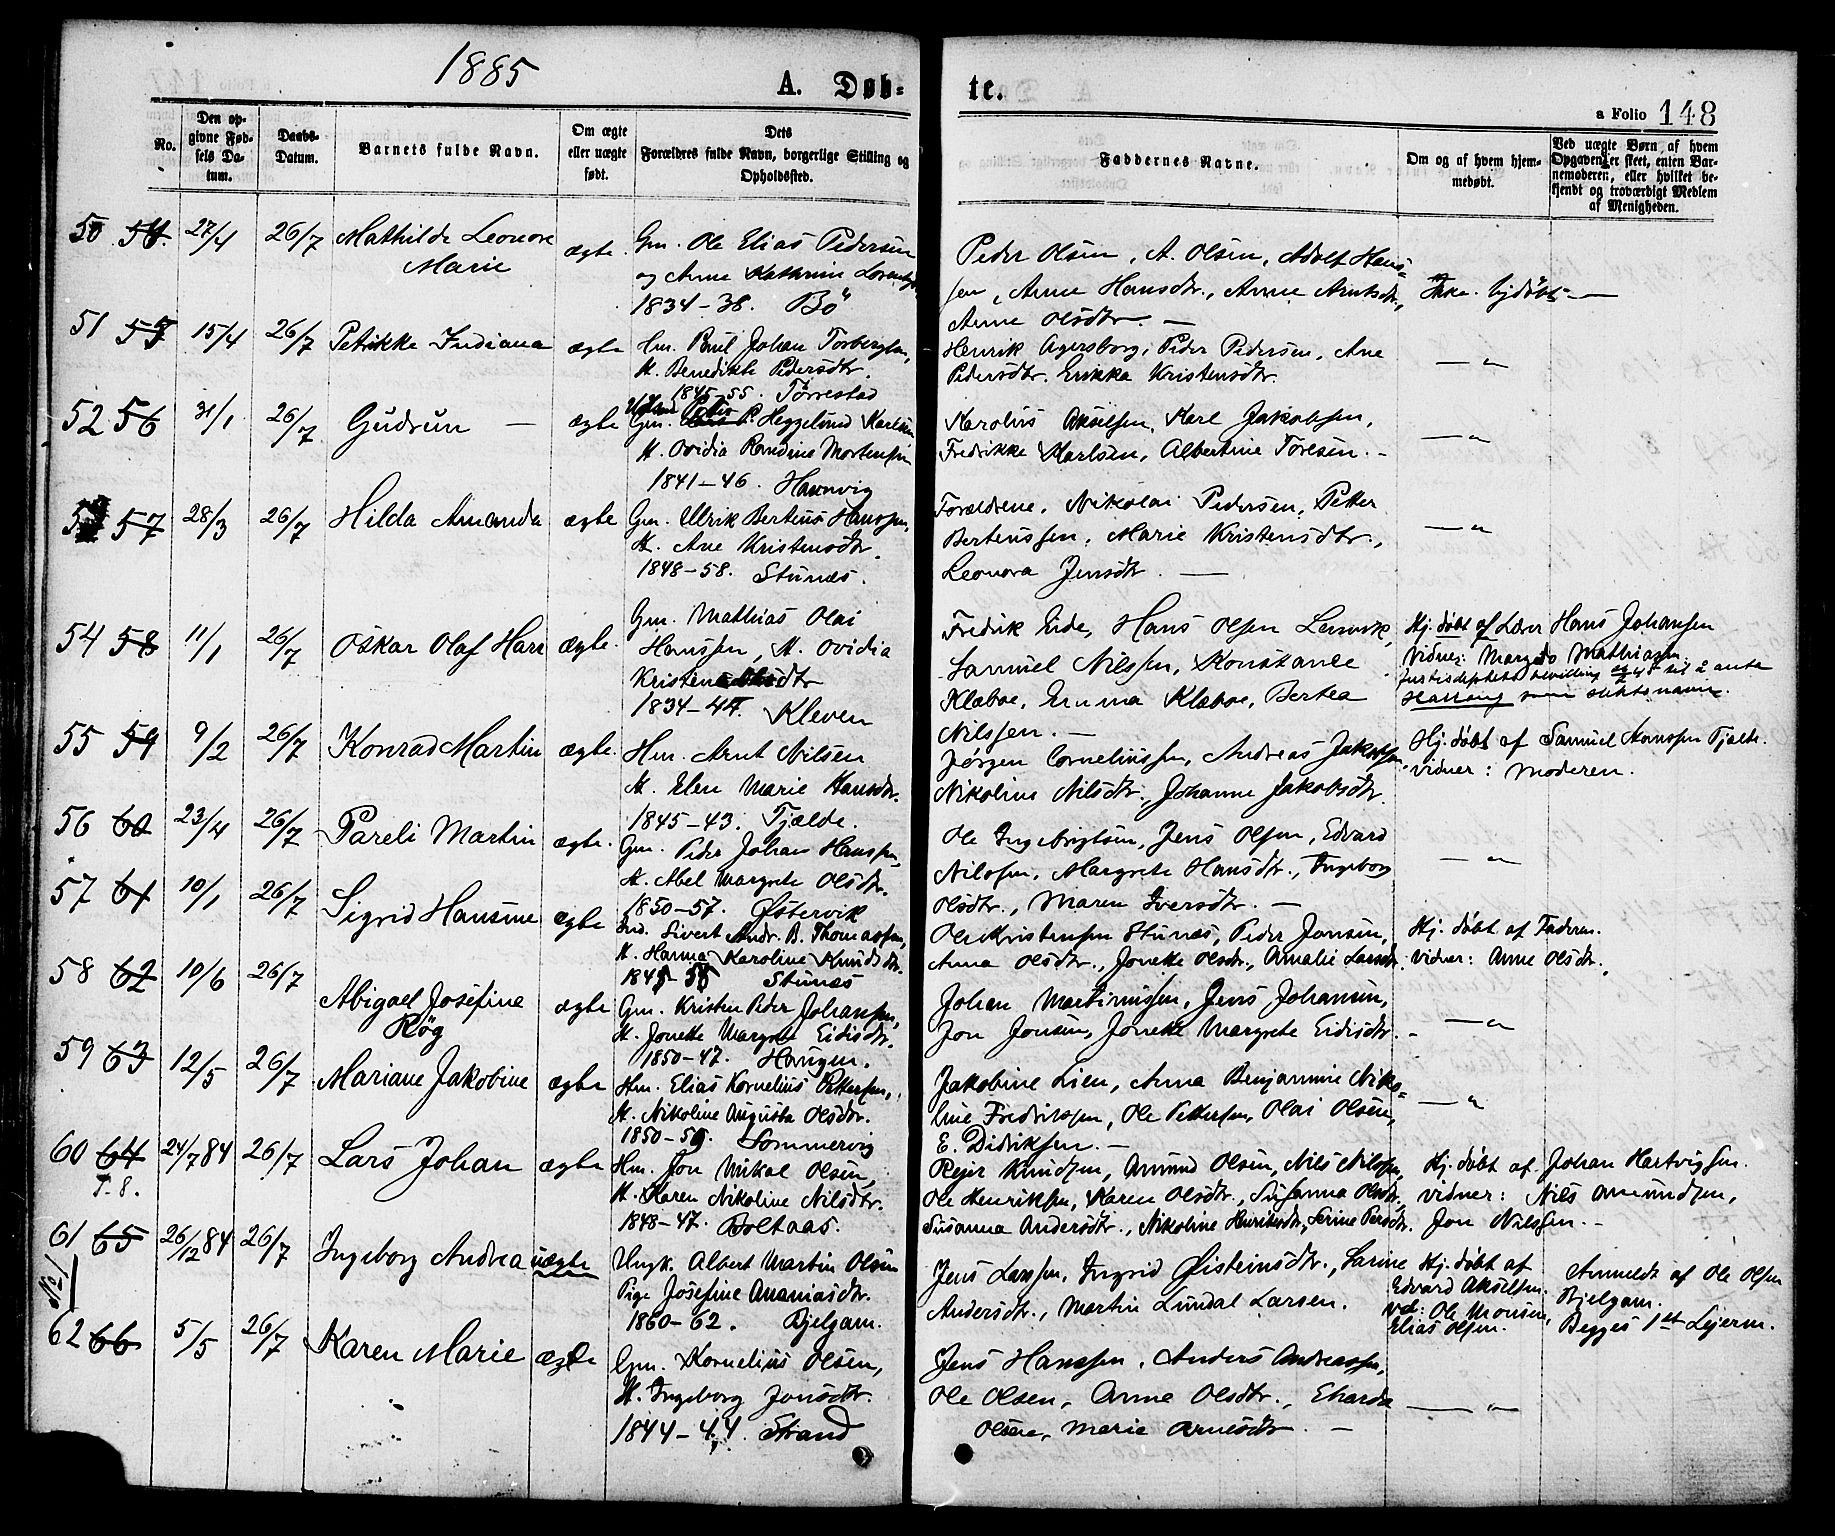 1885
A. Døb-
te.
a Folio 148
No.
Den op-
givne Fød-
sels Da-
tum.
Daabs-
Datum.
Barnets fulde Navn.
Om ægte
eller uægte
født.
Dets
Forældres fulde Navn, borgerlige Stilling og
Opholdssted.
Faddernes Navne.
Om og af hvem hjem-
medøbt.
Ved uægte Børn, af hvem
Opgaven er skeet, enten Bar-
nemoderen, eller hvilket be-
kjendt og troværdigt Medlem
af Menigheden.
50 54. 27/4 26/7 Mathilde Leonore
Marie
ægte.
Gm. Ole Elias Pedersen
og Anne Kathrine
1834-38. Bö
Peder Olsen, A. Olsen, Adolf Hans-
sen, Anne Hansdtr., Anne Arntsdtr.,
Anne Olsdtr. —
Ikke hjdöbt —
51 55 15/4 26/7 Petrikke Indiana ægte
Hm. Paul Johan Torbergsen,
H. Benedikte Pedersdtr.
1845-55. Torrestad
Henrik Agersborg, Peder Pedersen, Ane
Pedersdtr. Erikka Kristensdtr.
— " —
52 56 31/1 26/7 Gudrun — ægte
Gm. P. Heggelund Karlsen
H. Ovidia Mortensen
1841-46. Havnvig
Karolus Akselsen, Karl Jakobsen,
Fredrikke Karlsen, Albertine Toresen. —
— " —
57 28/3 26/7 Hilda Amanda ægte
Gm. Ulrik Berteus Hanssen,
H. Ane Kristensdtr.
1848-58. Stunes.
Forældrene, Nikolai Pedersen, Petter
Berteussen, Marie Kristensdtr.,
Leonora Jensdtr. —
— " —
54 58 11/1 26/7 Oskar Olaf Harr ægte.
Gm. Mathias Olai
Hanssen, H. Ovidia
Kristensdtr
1834-44. Kleven
Fredrik Eide, Hans Olsen Lenvik,
Samuel Nilssen, Konstance
Klæboe, Emma Klæboe, Bertea
Nilssen. —
Hj. döbt af Lærer Hans Johansen
Vidner: Margrete Mathiasen.
som slektsnavn.
55 59 9/2 26/7 Konrad Martin ægte.
Hm. Arnt Nilsen
H. Elen Marie Hansdtr.
1845-43. Tjælde.
Jørgen Corneliussen, Andreas Jakobsen,
Nikoline Nilsdtr., Johanne Jakobsdtr.
Hj. döbt af Samuel Hanssen Tjælde.
vidner: Moderen.
56 60 23/4 26/7 Pareli Martin ægte.
Gm. Peder Johan Hanssen,
H. Abel Margrete Olsdtr.
1850-57. Østervik
Ole Ingebrigtsen, Jens Olsen, Edvard
Nilssen, Margrete Hansdtr., Ingeborg
Olsdtr., Maren Iversdtr. —
— " —
57 61 10/1 26/7 Sigrid Hansine ægte
Ind. Sivert Andr. B. Thomassen,
H. Hanna Karoline Knudsdtr.
Stunes
Ole Kristensen Stunes, Peder Jonsen,
Anna Olsdtr., Joneke Olsdtr., Amalie Larsdtr.
Hj. döbt af Faderen.
vidner: Anne Olsdtr.
58 62 10/6 26/7 Abigael Josefine
Røg
ægte
Gm. Kristen Peder Johanssen,
H. Jonette Margrete Eidisdtr.
1850-47. Haugen.
Johan Martinussen, Jens Johansen,
Jon Jonsen, Joneke Margrete Eidisdtr. —
— " —
59 63 12/5 26/7 Mariane Jakobine ægte
Hm. Elias Kornelius Pettersen,
H. Nikoline Augusta Olsdtr.
Sommervig
Jakobine Lien, Anna Benjamine Niko-
line Fredriksen, Ole Pettersen, Olai Olsen,
E. Didriksen. —
— " —
60 64 24/7 84 26/7 Lars Johan ægte
T. 8.
Hm. Jon Mikal Olsen,
H. Karen Nikoline Nilsdtr.
1848-47. Boltaas.
Rejer Knudsen, Amund Olsen, Nils Nilssen,
Ole Henriksen, Karen Olsdtr., Susanna Olsdtr.,
Susanna Andersdtr., Nikoline Henriksdtr., Serine Persdtr.
Hj. döbt af Johan Hartvigsen.
vidner: Nils Amundsen,
Jon Nilssen. —
61 65 26/12 84 26/7 Ingeborg Andrea uægte
No 1
Ungk. Albert Martin Olsen
Pige Josefine Ananiasdtr.
1860-62. Bjelgam.
Jens Larssen, Ingrid Øisteinsdtr., Sarine
Andersdtr., Martin Lundal Larsen.
Hj. döbt af
Edvard Akselsen.
vid: Ole Monsen,
Elias Olsen.
Anmeldt af Ole Olsen
Bjelgam.
Begges 1st Lejerm.
62 66 5/5 26/7 Karen Marie ægte
Gm. Kornelius Olsen,
H. Ingeborg Jonsdtr.
1844-44. Strand
Jens Hanssen, Anders Andreassen,
Ole Olsen, Anne Olsdtr., Eharda
Olsen, Marie Arnesdtr. —
— " —